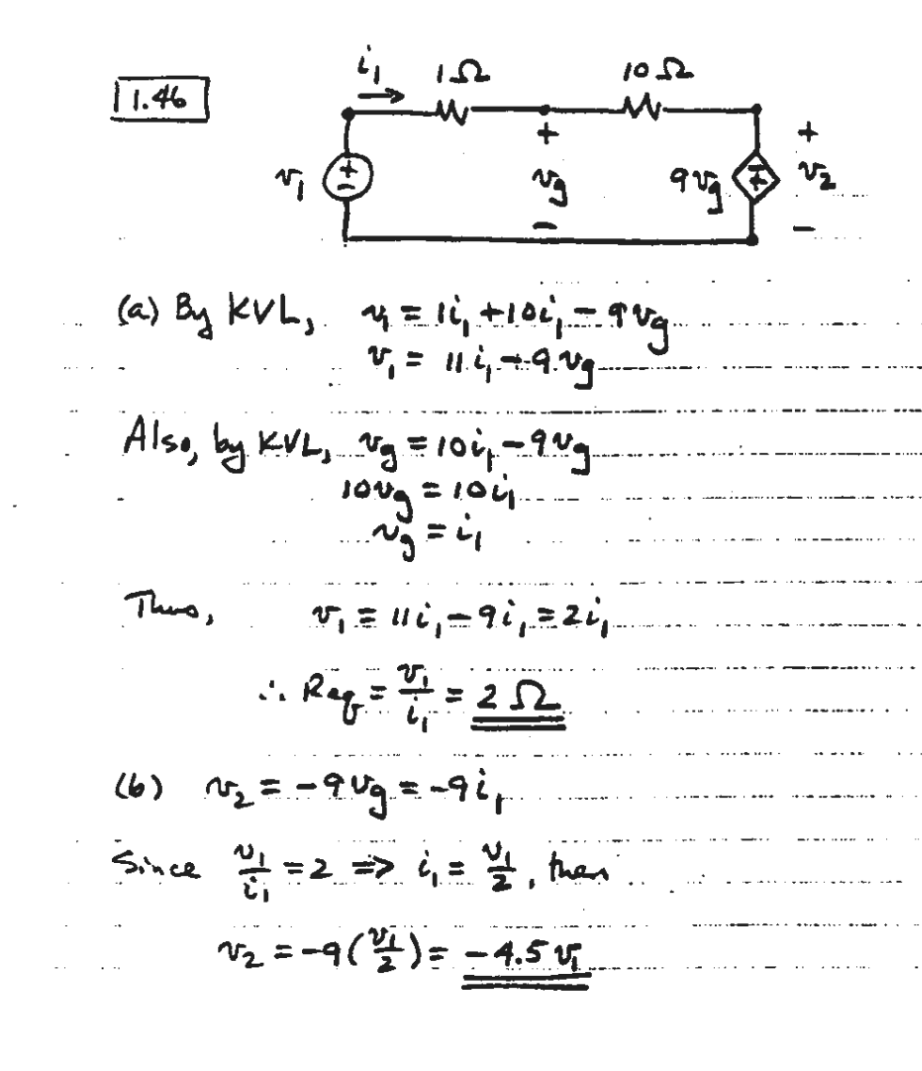 1.46
i₁ → 1Ω 10Ω
+ +
v₁ + − v_g 9v_g − + v₂
− −
(a) By KVL, v₁ = 1i₁ + 10i₁ − 9v_g
v₁ = 11i₁ − 9v_g
Also, by KVL, v_g = 10i₁ − 9v_g
10v_g = 10i₁
v_g = i₁
Thus, v₁ = 11i₁ − 9i₁ = 2i₁
∴ Req = v₁/i₁ = 2 Ω
(b) v₂ = −9v_g = −9i₁
Since v₁/i₁ = 2 ⇒ i₁ = v₁/2, then
v₂ = −9(v₁/2) = −4.5 v₁